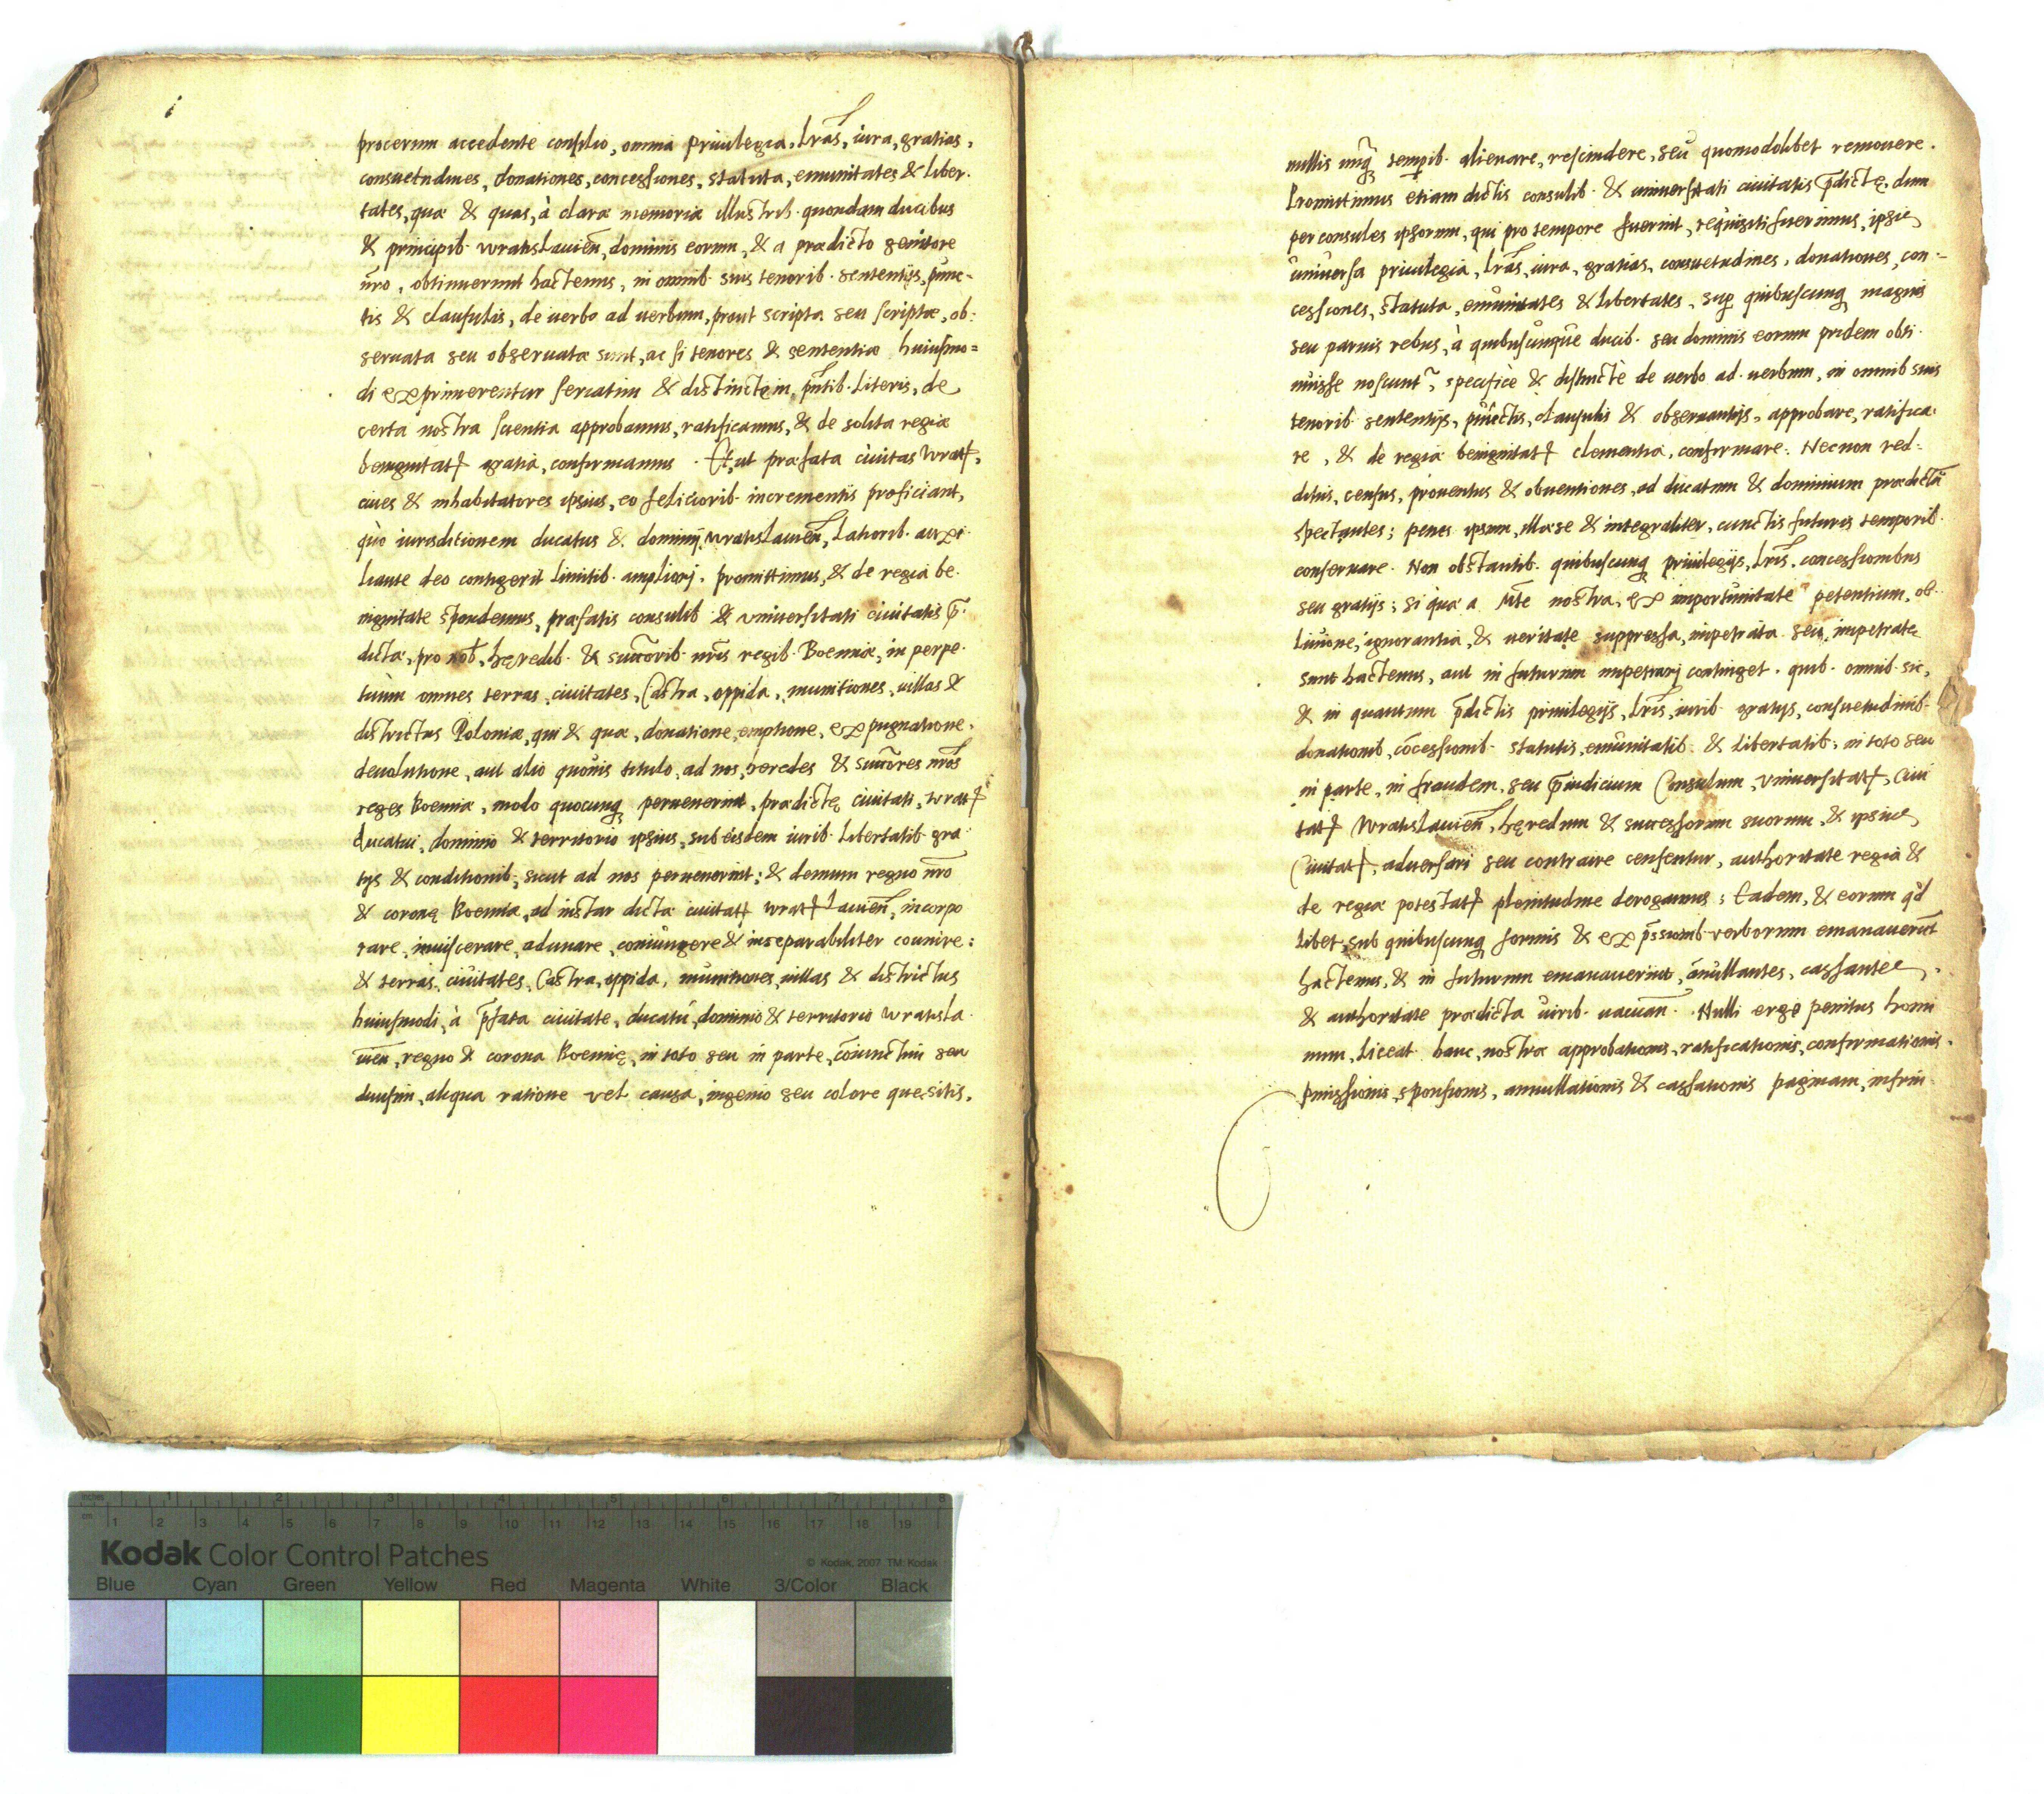 i
procerum accedente consilio, omnia priuilegia, lr̃as, iura, gratias,
consuetudines, donationes, concessiones, statuta, emunitates & liber-
tates, quæ & quas, à claræ memoriæ illustrib. quondam ducibus
& principib. wratislauien̄, dominis eorum, & a prædicto genitore
nr̃o, obtinuerunt hactenus, in omnib. suis tenorib. sententijs, punc-
tis & clausulis, de uerbo ad uerbum, prout scripta seu scriptæ, ob-
seruata seu obseruatæ sunt, ac si tenores & sententiæ huiusmo=
di exprimerentur seriatim & distinctę in pñtib. literis, de
certa nostra scientia approbamus, ratificamus, & de solita regiæ
benignitatꝭ gratia, confirmamus. Et, ut præfata ciuitas wratꝭ,
ciues & inhabitatores ipsius, eo feliciorib. incrementis proficiant,
quò iurisditionem ducatus & dominij wratislauien̄, latiorib. auxi-
liante deo contigerit limitib. ampliorj, promittimus, & de regia be-
nignitate spondemus, præfatis consulib. & vniuersitati ciuitatis p̄-
dictæ, pro nob̄, hęredib. & succ̄orib. nr̃is regib. Boemiæ, in perpe-
tuùm omnes terras, ciuitates, Castra, oppida, munitiones, uillas &
districtus Poloniæ, qui & quæ, donatione, emptione, expugnatione,
deuolutione, aut alio quouis titulo, ad nos, heredes & succ̄ores nr̃os
reges Boemiæ, modo quocunq̨ peruenerint, prædictę ciuitati, wratꝭ
ducatui, dominio & territorio ipsius, sub eisdem iurib. libertatib. gra-
tijs & conditionib., sicut ad nos peruenerint; & demum regno nr̃o
& coronę Boemiæ, ad instar dictæ ciuitatꝭ wratꝭlauien̄, incorpo
rare, inuiscerare, adunare, coniungere & inseparabiliter counire:
& terras, ciuitates, Castra, oppida, munitiones, uillas & districtus
huiusmodi, à p̄fata ciuitate, ducatu, dominio & territorio wratisla-
uien̄, regno & corona Boemię, in toto seu in parte, cōiunctim seu
diuisim, aliqua ratione vel causa, ingenio seu colore quęsitis,
nullis unq̨ tempib. alienare, rescindere, seu quomodolibet remouere.
Promittimus etiam dictis consulib. & uniuersitati ciuitatis p̄dictę, dum
per consules ipsorum, qui pro tempore fuerint, requisiti fuerimus, ipsis
uniuersa priuilegia, lr̃as, iura, gratias, consuetudines, donationes, con-
cessiones, statuta, emunitates & libertates, sup quibuscunq̨ magnis
seu paruis rebus, à quibuscunque ducib. seu dominis eorum pridem obti-
nuisse noscunt᷑, specificè & distinctè de uerbo ad uerbum, in omnib suis
tenorib. sententijs, punctis, clausulis & obseruantijs, approbare, ratifica-
re, & de regiæ benignitatꝭ clementia, confirmare. Necnon red-
ditus, census, prouentus & obuentiones, ad ducatum & dominium prædictū
spectantes; penes ipsum, illæse & integraliter, cunctis futuris temporib.
conseruare. Non obstantib. quibuscunq̨ priuilegijs, lr̃is, concessionibus
seu gratijs; si quæ a M̃te nostra, ex importunitate petentium, ob-
liuione, ignorantia, & ueritate suppressa, impetrata seu impetratę
sunt hactenus, aut in futurum impetrarj continget. quib. omnib. sic,
& in quantum p̄dictis priuilegijs, lr̃is, iurib. gratijs, consuetudinib.
donationib, cōcessionib. statutis, emunitatib. & libertatib. in toto seu
in parte, in fraudem, seu p̄iudicium Consulum, vniuersitatꝭ, Ciui
tatꝭ Wratislauien̄, hęredum & successorum suorum, & ipsius
Ciuitatꝭ, aduersari seu contraire censentur, authoritate regia &
de regiæ potestatꝭ plenitudine derogamus; Eadem, & eorum qd
libet, sub quibuscunq̨ formis & exp̄ssionib. verborum emanauerūt
hactenus, & in futurum emanauerint, ānullantes, cassantes,
& authoritate prædicta uirib. uacuan̄. Nulli ergo penitus homi
num, liceat hanc, nostræ approbationis, ratificationis, confirmationis,
pmissionis, sponsionis, annullationis & cassationis paginam, infrin-
Kodak Color Control Patches
© Kodak, 2007 TM: Kodak
inches 1 2 3 4 5 6 7 8
cm 1 2 3 4 5 6 7 8 9 10 11 12 13 14 15 16 17 18 19
Blue Cyan Green Yellow Red Magenta White 3/Color Black